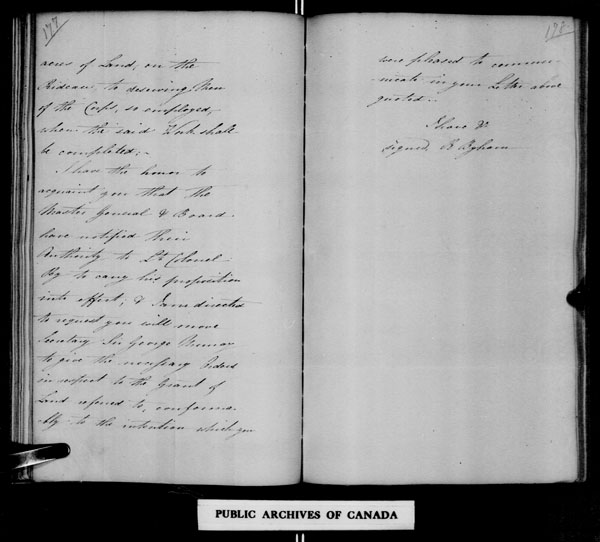 177
acres of Land, on the
Rideau, to deserving Men
of the Corps, so employed,
when the said Work shall
be completed;-
I have the honor to
acquaint you that the
Master General & Board
have notified their
Authority to Lt Colonel
By to carry his proposition
into effect; & I am directed
to request you will move
Secretary Sir George Murray
to give the necessary Orders
in respect to the Grant of
Land referred to, conforma-
-bly to the intention which you
178
were pleased to commu-
-nicate in your Letter above
quoted.-
I have &c
signed R Byham
PUBLIC ARCHIVES OF CANADA